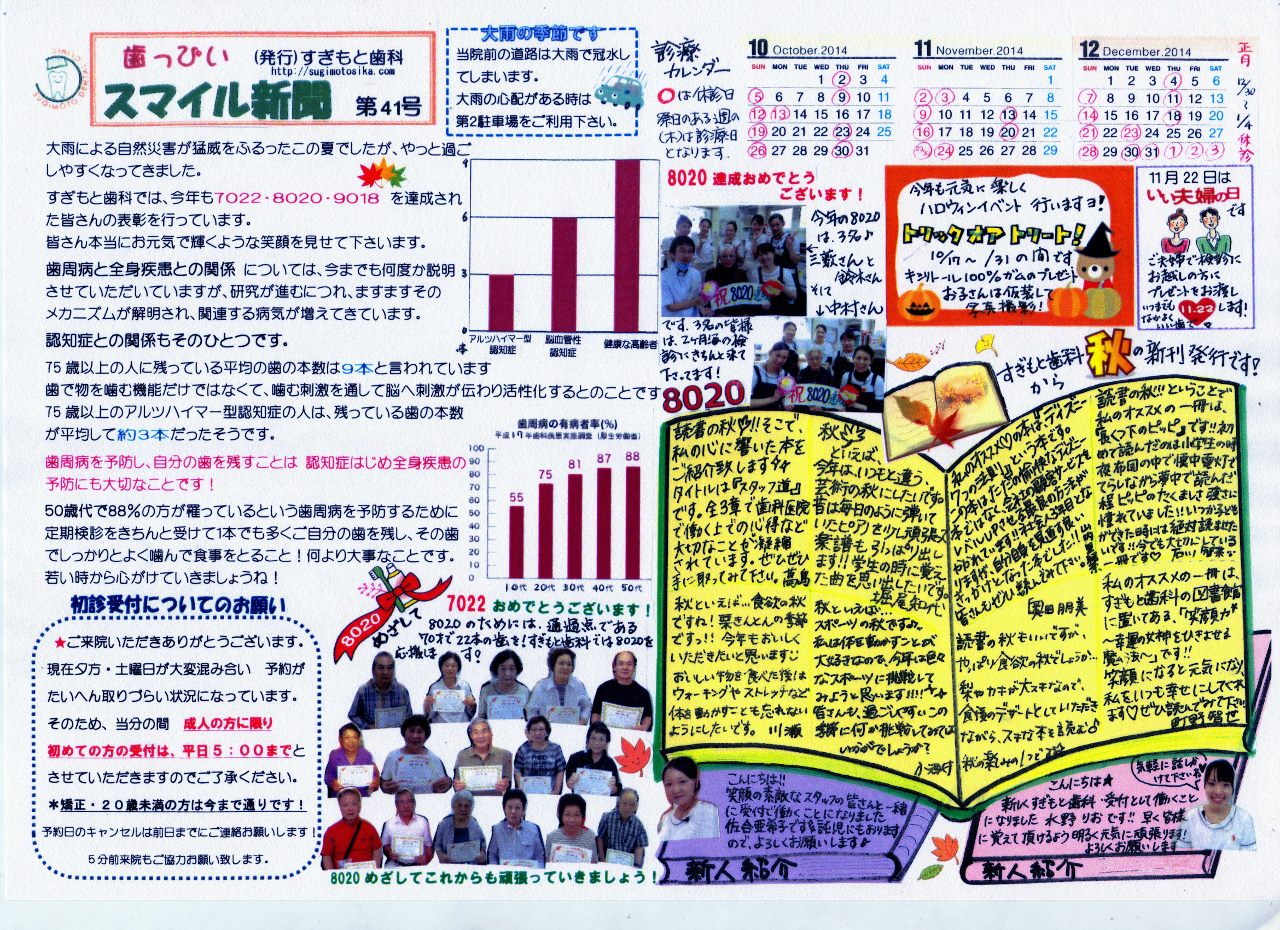 歯っぴい
(発行)すぎもと歯科
http://sugimotosika.com
スマイル新聞 第41号
大雨の季節です
当院前の道路は大雨で冠水し
てしまいます。
大雨の心配がある時は
第2駐車場をご利用下さい。
大雨による自然災害が猛威をふるったこの夏でしたが、やっと過ご
しやすくなってきました。
すぎもと歯科では、今年も7022・8020・9018 を達成され
た皆さんの表彰を行っています。
皆さん本当にお元気で輝くような笑顔を見せて下さいます。
歯周病と全身疾患との関係 については、今までも何度か説明
させていただいていますが、研究が進むにつれ、ますますその
メカニズムが解明され、関連する病気が増えてきています。
認知症との関係もそのひとつです。
75歳以上の人に残っている平均の歯の本数は9本と言われています
歯で物を噛む機能だけではなくて、噛む刺激を通して脳へ刺激が伝わり活性化するとのことです
75歳以上のアルツハイマー型認知症の人は、残っている歯の本数
が平均して約3本だったそうです。
歯周病を予防し、自分の歯を残すことは 認知症はじめ全身疾患の
予防にも大切なことです！
50歳代で88%の方が罹っているという歯周病を予防するために
定期検診をきちんと受けて1本でも多くご自分の歯を残し、その歯
でしっかりとよく噛んで食事をとること！何より大事なことです。
若い時から心がけていきましょうね！
9
6
3
本
アルツハイマー型
認知症
脳血管性
認知症
健康な高齢者
歯周病の有病者率(%)
100
90
80
70
60
50
40
30
20
10
0
55
75
81
87
88
10代 20代 30代 40代 50代
初診受付についてのお願い
★ご来院いただきありがとうございます。
現在夕方・土曜日が大変混み合い 予約が
たいへん取りづらい状況になっています。
そのため、当分の間 成人の方に限り
初めての方の受付は、平日5：00までと
させていただきますのでご了承ください。
＊矯正・20歳未満の方は今まで通りです！
予約日のキャンセルは前日までにご連絡お願いします！
5分前来院もご協力お願い致します。
8020
めざして
7022 おめでとうございます！
8020のためには、通過点である
70才で22本の歯を！すぎもと歯科では8020を
応援します。
8020めざしてこれからも頑張っていきましょう！
診療
カレンダー
○は休診日
祭日のある週の
(木)は診療日
となります。
10 October.2014
SUN MON TUE WED THU FRI SAT
1 2 3 4
5 6 7 8 9 10 11
12 13 14 15 16 17 18
19 20 21 22 23 24 25
26 27 28 29 30 31
11 November.2014
SUN MON TUE WED THU FRI SAT
1
2 3 4 5 6 7 8
9 10 11 12 13 14 15
16 17 18 19 20 21 22
23/30 24 25 26 27 28 29
12 December.2014
SUN MON TUE WED THU FRI SAT
1 2 3 4 5 6
7 8 9 10 11 12 13
14 15 16 17 18 19 20
21 22 23 24 25 26 27
28 29 30 31 1 2 3
正月
12/30〜1/4休診
8020 達成おめでとう
ございます！
今年の8020
は、3名♪
三薮さんと
鈴木さん
そして
↓中村さん
です。3名の皆様
は、2ヶ月毎の検
診にきちんと来て
下さってます！
祝8020達成
祝8020
8020
今年も元気に楽しく
ハロウィンイベント行いますヨ！
トリック オア トリート！
10/17〜/31の間です
キシリトール100%ガムのプレゼント
お子さんは仮装して
写真撮影！
11月22日は
いい夫婦の日
です
ご夫婦で検診に
お越しの方に
プレゼントをお渡し
します！
いつまでも
なかよく
11.22
すぎもと歯科
から
秋の新刊発行です！
読書の秋!!そこで、
私の心に響いた本を
ご紹介致します
タイトルは『スタッフ道』
です。全3章で歯科医院
で働く上での心得など
大切なことが凝縮
されています。ぜひぜひ
手に取ってみて下さい。高島
秋といえば…食欲の秋
ですね！栗さんとんの季節
ですっ!!今年もおいしく
いただきたいと思います
おいしい物を食べた後は
ウォーキングやストレッチなど
体を動かすことも忘れない
ようにしたいです。川瀬
秋
といえば、
今年は、いつもと違う、
芸術の秋にしたいです。
昔は毎日のように弾いて
いたピアノを少し頑張って
楽譜も引っぱり出し
ます!!学生の時に覚え
た曲を思い出したいです。
堀尾和代
秋といえば…
スポーツの秋ですね♪
私は体を動かすことが
大好きなので、今年は色々
なスポーツに挑戦して
みようと思います!!!
皆さんも、過ごしやすいこの
季節に何か挑戦してみては
いかがでしょうか？
私のオススメの本は『ディズニー
7つの法則』という本です。
奥田朋美
読書の秋もいいですが、
やっぱり食欲の秋でしょうか…
梨やカキが大スキなので、
食後のデザートとしていただき
ながら、スキな本を読む♪
秋の楽しみの1つです
読書の秋!!!ということで
私のオススメの一冊は、
『長くつ下のピッピ』です!!初
めて読んだのは小学生の時
夜布団の中で懐中電灯で
てらしながら夢中で読んだ
程ピッピのたくましさ強さに
憧れていました!!いつか子ども
ができた時には絶対読ませた
いです!!今でも大切にしている
一冊です♡
私のオススメの一冊は、
すぎもと歯科の図書館
に置いてある、『笑顔力
〜幸運の女神をひきよせる
魔法〜』です!!
笑顔になると元気になり、
私をいつも幸せにしてくれ
ます♡ぜひ読んでみて下さい。
町野智世
こんにちは!!
笑顔の素敵なスタッフの皆さんと一緒
に受付で働くことになりました
佐合亜希子です。託児にもおります
ので、よろしくお願いします♪
新人紹介
気軽に話しか
けて下さい
こんにちは★
新しくすぎもと歯科 受付として働くこと
になりました 水野りおです!!早く皆様
に覚えて頂けるよう明るく元気に頑張ります!
よろしくお願いします
新人紹介